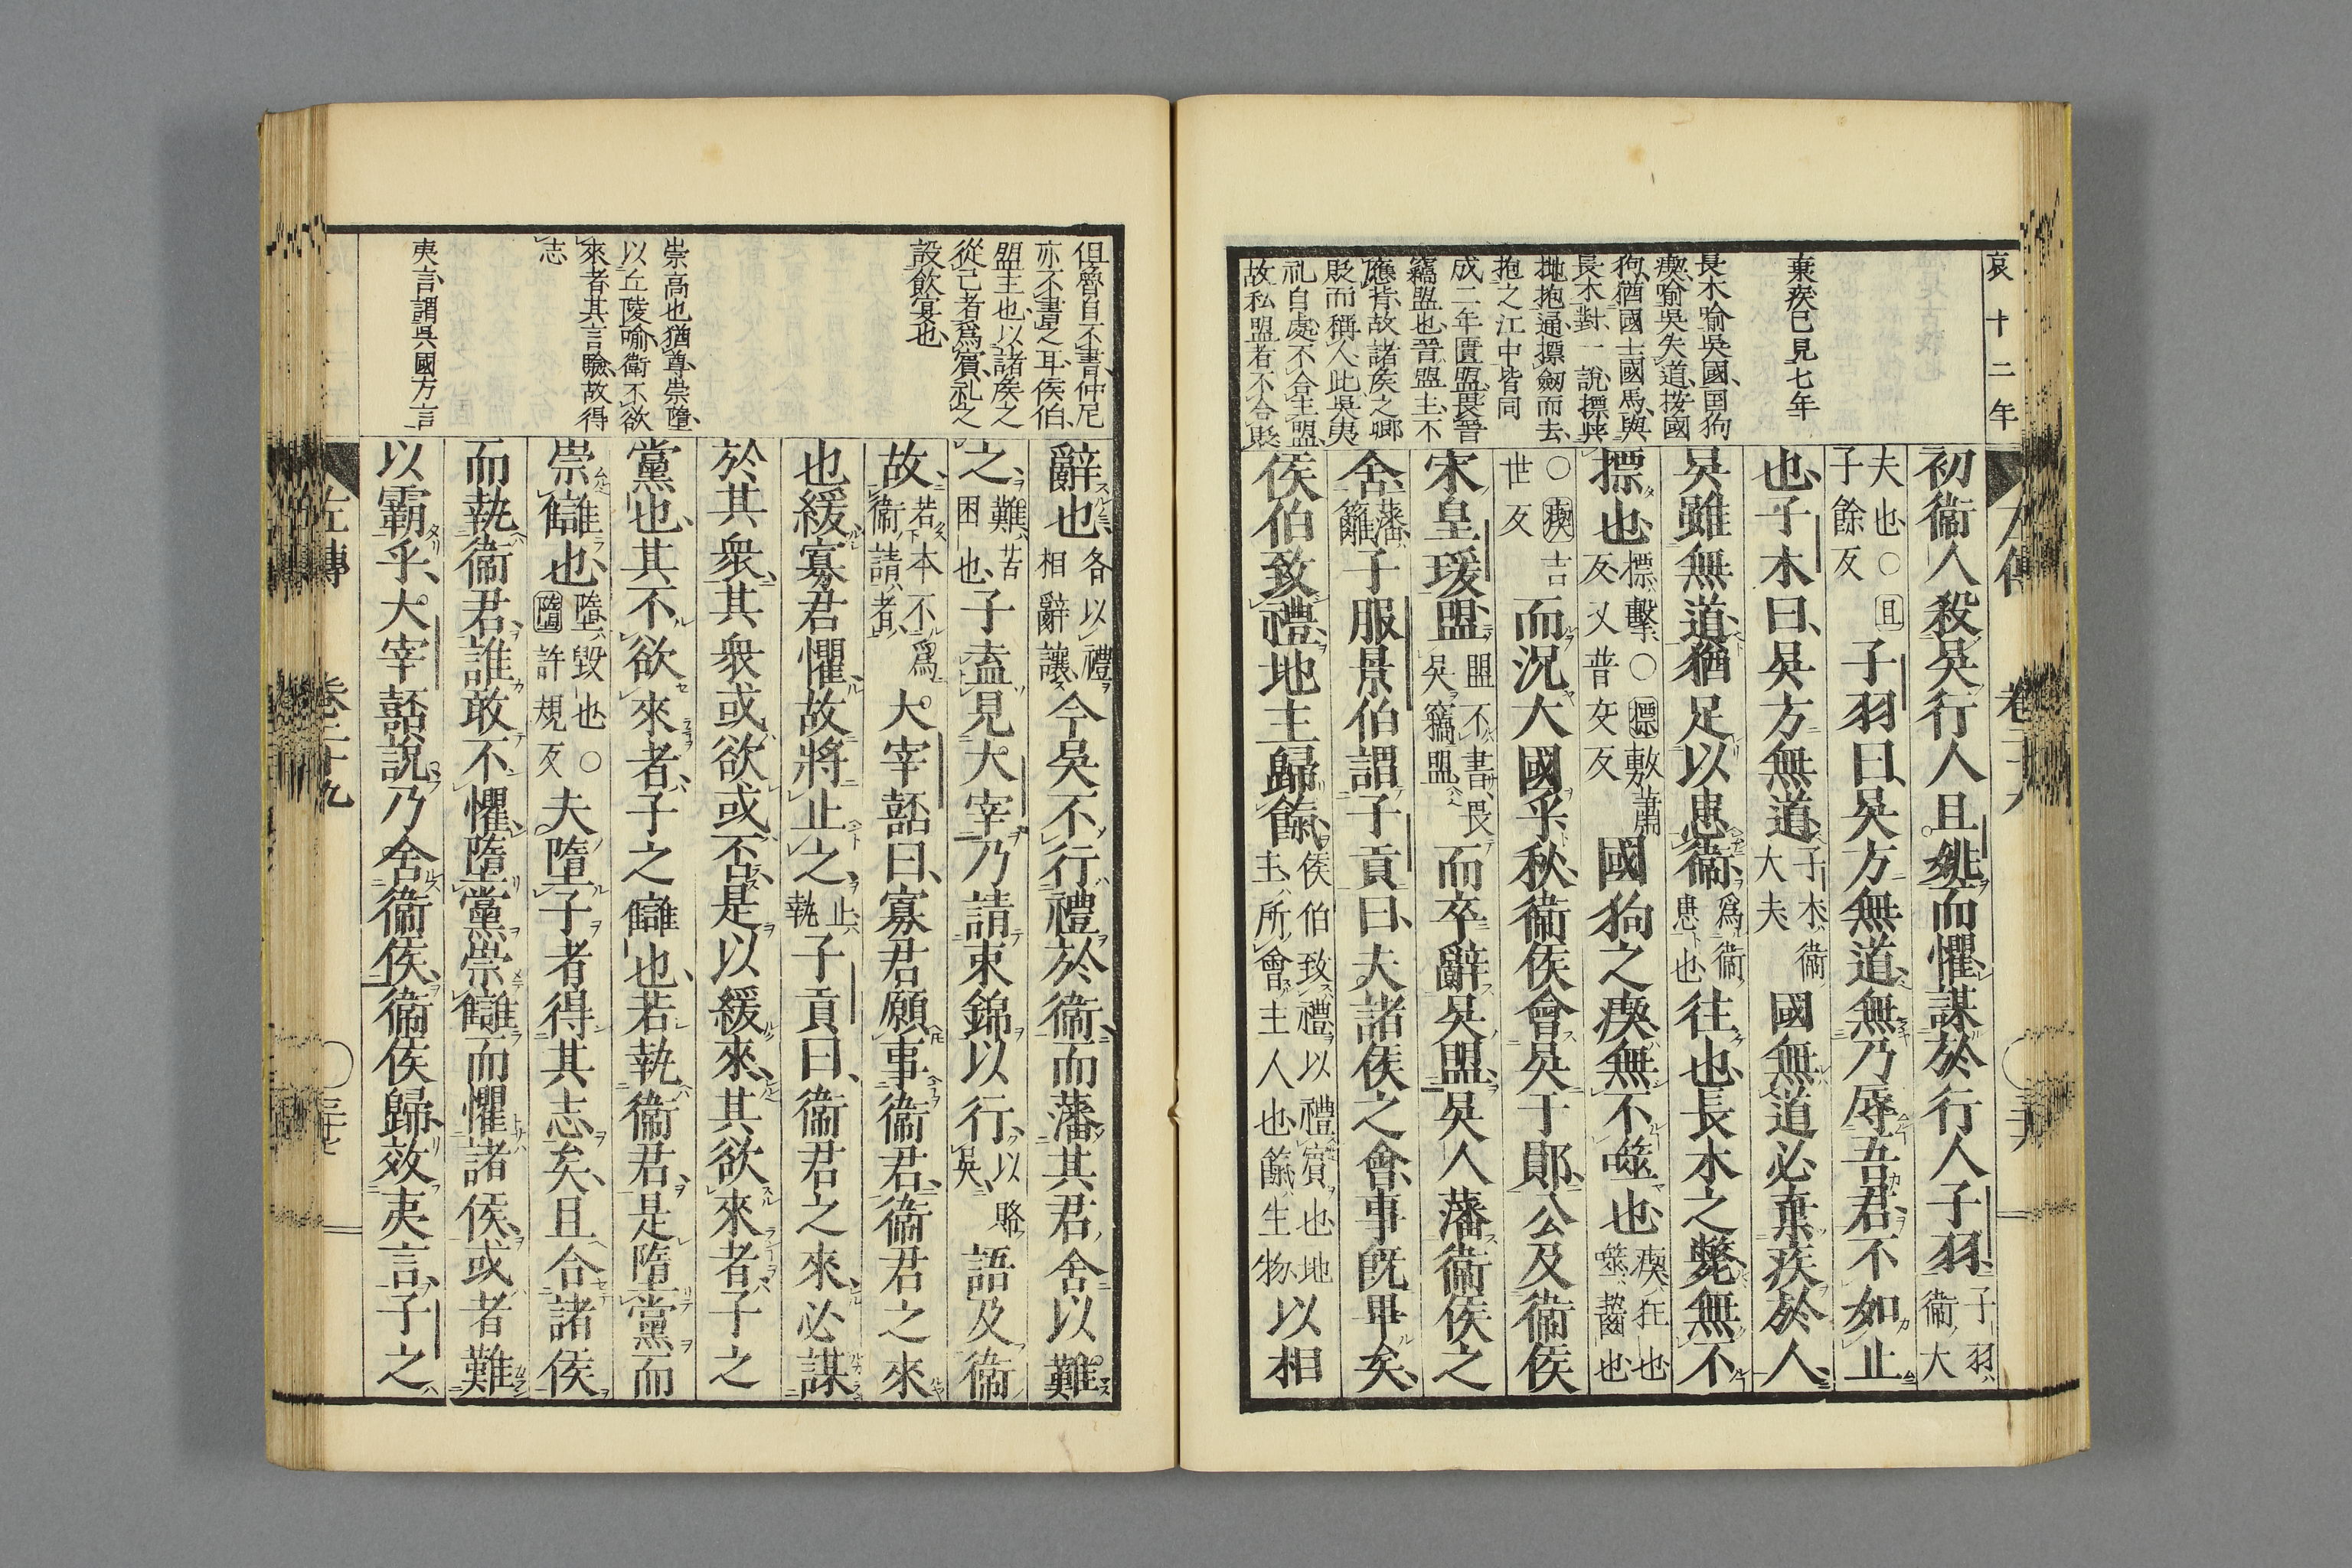 哀十二年
棄疾已見七年
長木喻吳國国狗
瘈喻吳失道按國
狗猶國士國馬與
長木對一說摽與
抛抱通摽劔而去
抱之江中皆同
成二年匱盟畏晉
竊盟也晉盟主不
應背故諸侯之卿
貶而稱人此吳夷
礼自處不合主盟
故私盟者不合貶
初衞人殺吳行人且姚而懼謀於行人子羽子羽衞大
夫也○且子餘反子羽曰吳方無道無乃辱吾君不如止
也子木曰吳方無道子木衞大夫國無道必棄疾於人
吳雖無道猶足以患衞爲衞患也往也長木之斃無不
摽也摽擊○摽敷蕭反又普交反國狗之瘈無不噬也瘈狂也噬齧也
○瘈吉世反而況大國乎秋衞侯會吳于鄖公及衞侯
宋皇瑗盟盟不書畏吳竊盟而卒辭吳盟吳人藩衞侯之
舍藩籬子服景伯謂子貢曰夫諸侯之會事既畢矣
侯伯致禮地主歸餼侯伯致禮以禮賓也地主所會主人也餼生物以相
但魯自不書仲尼
亦不書之耳侯伯
盟主也以諸侯之
從己者爲賓礼之
設飲宴也
崇高也猶尊崇墮
以丘陵喻衞不欲
來者其言驗故得
志
夷言謂吳國方言
辭也各以禮相辭讓今吳不行禮於衞而藩其君舍以難
之難苦困也子盍見大宰乃請束錦以行以賂吳語及衞
故若本不爲衞請者大宰嚭曰寡君願事衞君衞君之來
也緩寡君懼故將止之止執子貢曰衞君之來必謀
於其衆其衆或欲或否是以緩來其欲來者子之
黨也其不欲來者子之讎也若執衞君是墮黨而
崇讎也墮毀也○墮許規反夫墮子者得其志矣且合諸侯
而執衞君誰敢不懼墮黨崇讎而懼諸侯或者難
以霸乎大宰嚭說乃舍衞侯衞侯歸效夷言子之
左傳　卷二十九